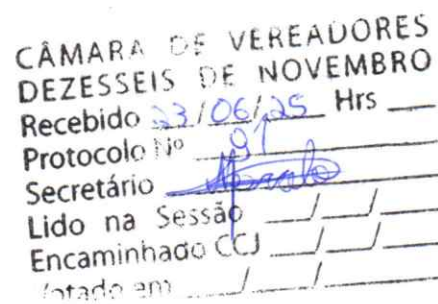 CÂMARA DE VEREADORES
DEZESSEIS DE NOVEMBRO
Recebido 23/06/25 Hrs ___
Protocolo Nº 91
Secretário
Lido na Sessão __/__/__
Encaminhado CCJ __/__/__
Votado em __/__/__